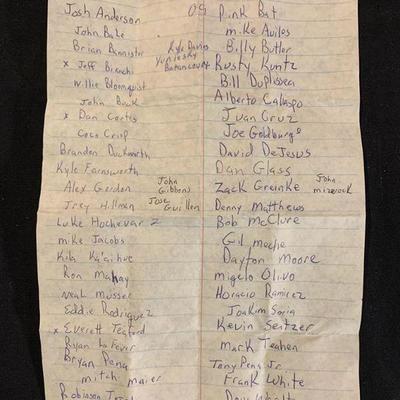 Josh Anderson
John Bale
Brian Bannister
x Jeff Bianchi
Willie Bloomquist
John Buck
x Dan Cortes
Coco Crisp
Brandon Duckworth
Kyle Farnsworth
Alex Gordon
John Gibbons
Trey Hillman
Jose Guillen
Luke Hochevar 2
Mike Jacobs
Kila Ka'aihue
Ron Mahay
Neal Musser
Eddie Rodriguez
x Everett Teaford
Ryan LeFever
Bryan Pena
mitch maier
Robinson
09
Kyle Davies
Yuniesky
Betancourt
Pink Bat
mike Aviles
Billy Butler
Rusty Kuntz
Bill Duplissea
Alberto Callaspo
Juan Cruz
Joe Goldburg
David DeJesus
Dan Glass
Zack Greinke
John mizerock
Denny Matthews
Bob McClure
Gil meche
Dayton Moore
migelo Olivo
Horacio Ramirez
Joakim Soria
Kevin Seitzer
Mark Teahen
Tony Pena Jr.
Frank White